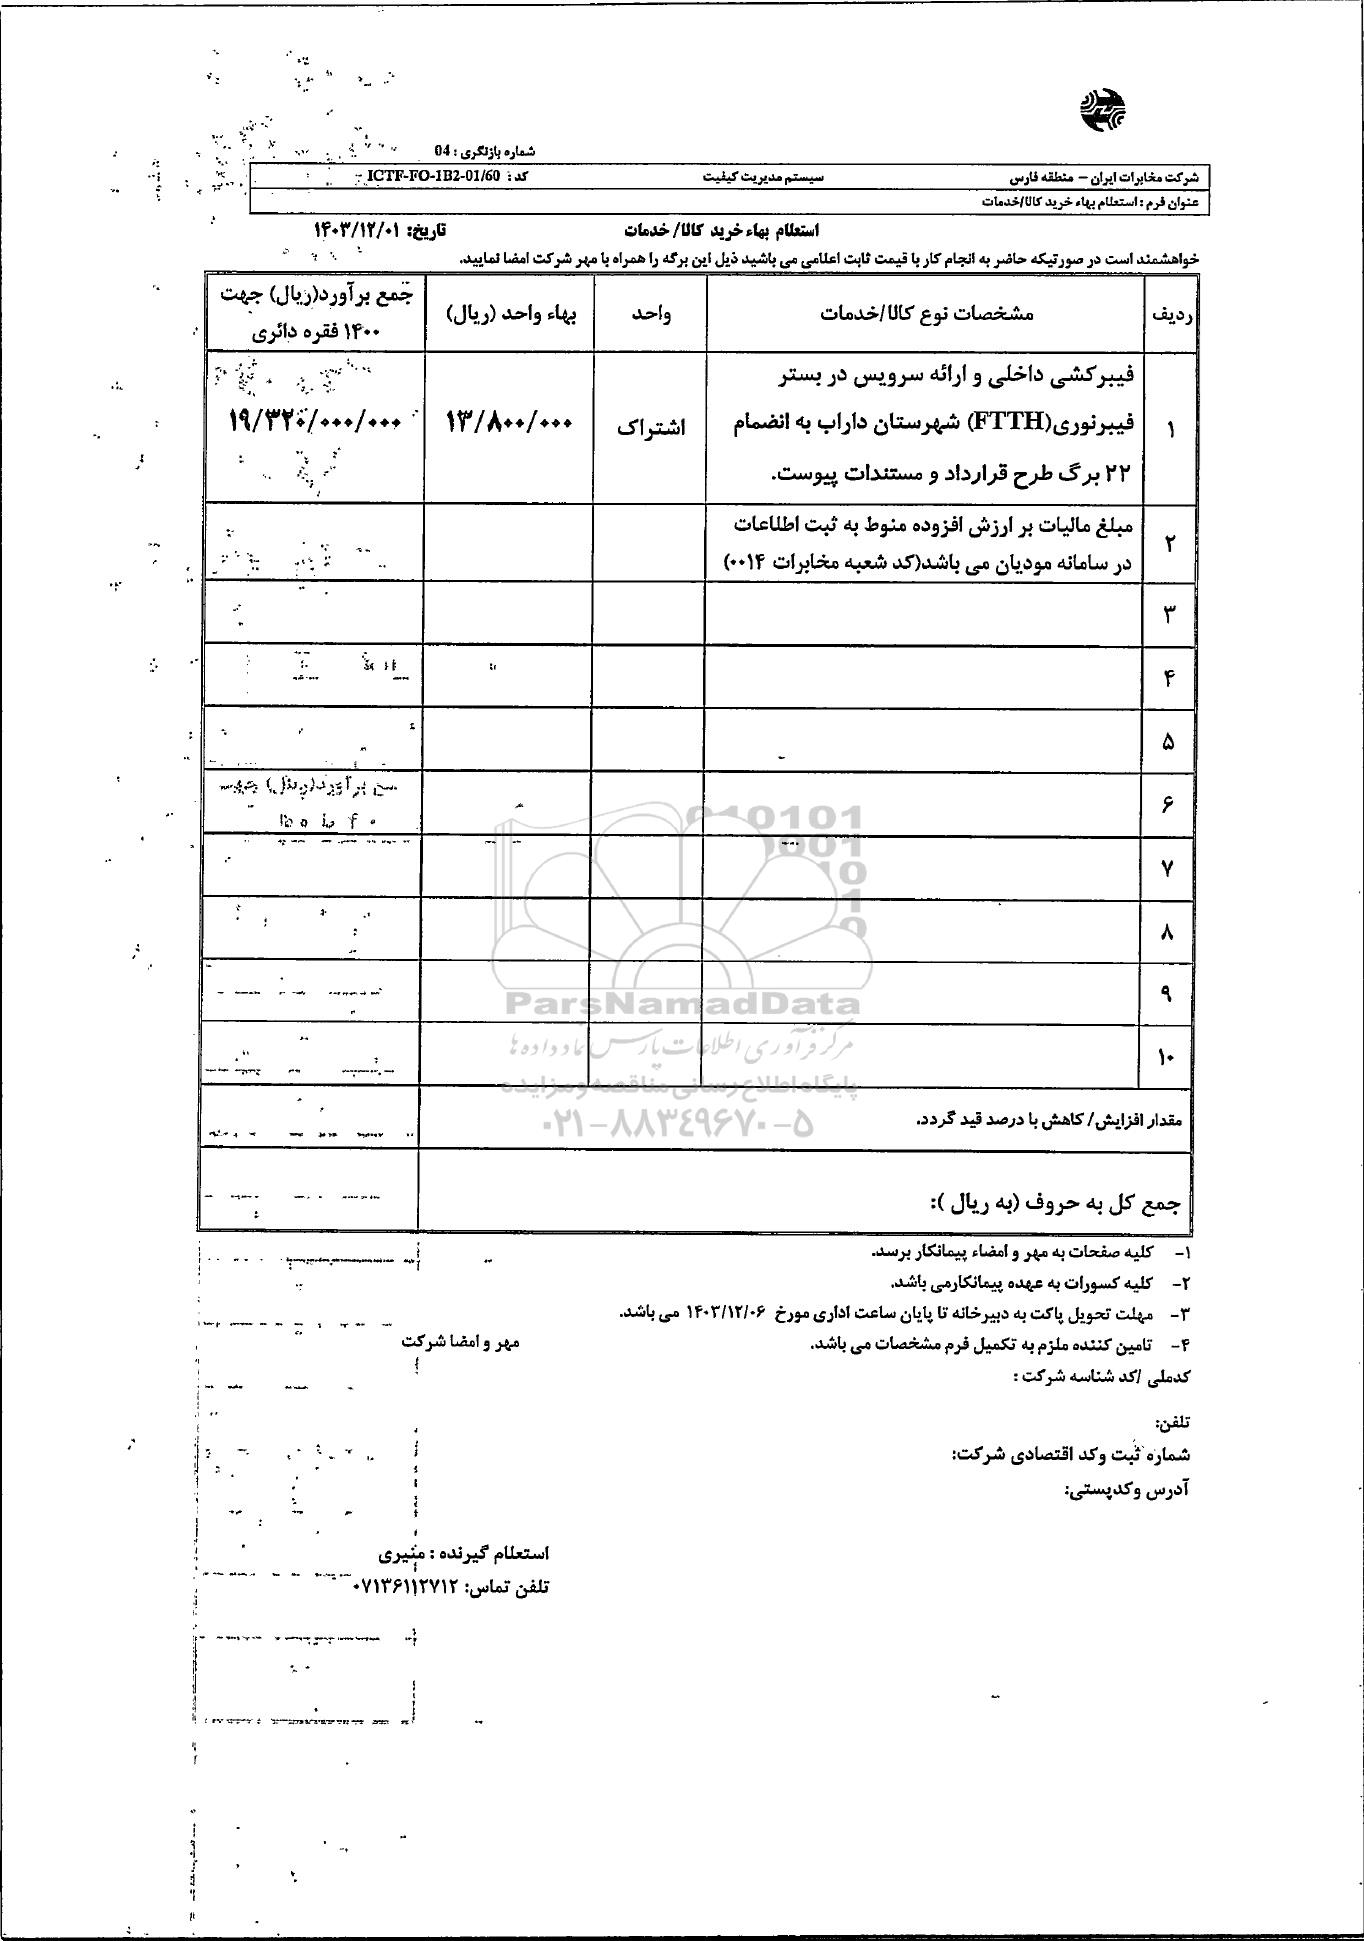 شماره بازنگری : 04
شرکت مخابرات ایران – منطقه فارس سیستم مدیریت کیفیت کد : ICTF-FO-1B2-01/60
عنوان فرم : استعلام بهاء خرید کالا/خدمات
استعلام بهاء خرید کالا/ خدمات تاریخ: ۱۴۰۳/۱۲/۰۱
خواهشمند است در صورتیکه حاضر به انجام کار با قیمت ثابت اعلامی می باشید ذیل این برگه را همراه با مهر شرکت امضا نمایید.
ردیف مشخصات نوع کالا/خدمات واحد بهاء واحد (ریال) جمع برآورد(ریال) جهت
۱۴۰۰ فقره دائری
فیبرکشی داخلی و ارائه سرویس در بستر
۱ فیبرنوری(FTTH) شهرستان داراب به انضمام اشتراک ۱۳/۸۰۰/۰۰۰ ۱۹/۳۲۰/۰۰۰/۰۰۰
۲۲ برگ طرح قرارداد و مستندات پیوست.
۲ مبلغ مالیات بر ارزش افزوده منوط به ثبت اطلاعات
در سامانه مودیان می باشد(کد شعبه مخابرات ۰۰۱۴)
۳
۴
۵
۶
۷
۸
۹
۱۰
010101
001
10
1
0
ParsNamadData
مرکز فرآوری اطلاعات پارس نماد داده ها
پایگاه اطلاع رسانی مناقصه و مزایده
۰۲۱-۸۸۳۴۹۶۷۰-۵
مقدار افزایش/ کاهش با درصد قید گردد.
جمع کل به حروف (به ریال ):
۱- کلیه صفحات به مهر و امضاء پیمانکار برسد.
۲- کلیه کسورات به عهده پیمانکارمی باشد.
۳- مهلت تحویل پاکت به دبیرخانه تا پایان ساعت اداری مورخ ۱۴۰۳/۱۲/۰۶ می باشد.
۴- تامین کننده ملزم به تکمیل فرم مشخصات می باشد. مهر و امضا شرکت
کدملی /کد شناسه شرکت :
تلفن:
شماره ثبت وکد اقتصادی شرکت:
آدرس وکدپستی:
استعلام گیرنده : منیری
تلفن تماس: ۰۷۱۳۶۱۱۲۷۱۲